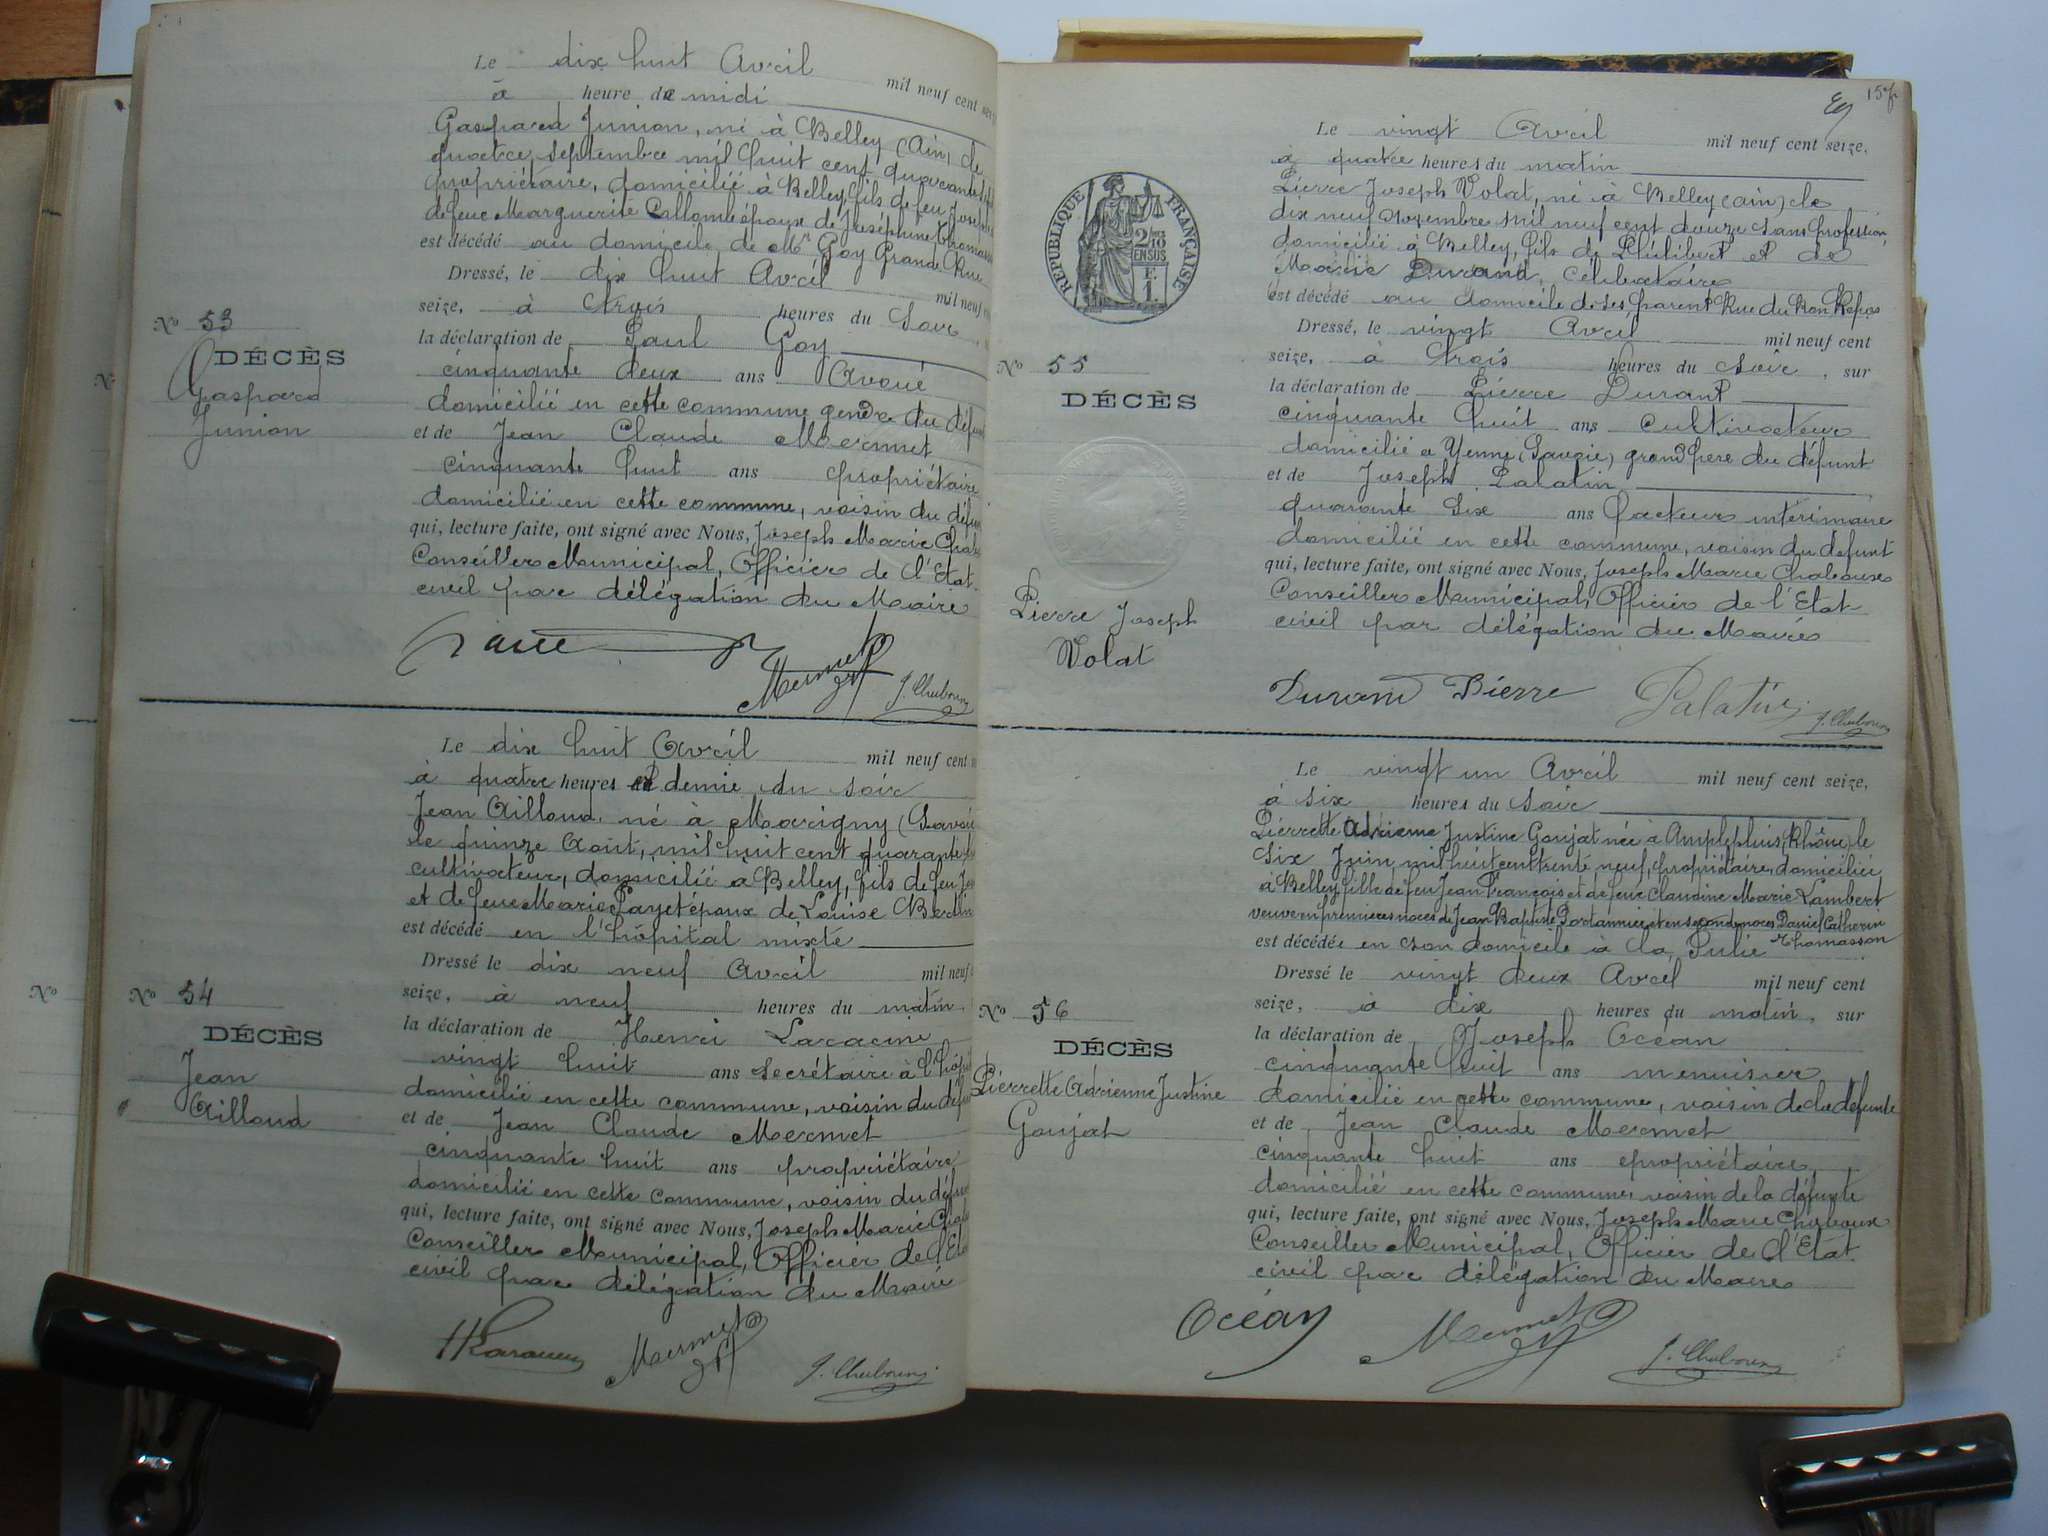 Le dix huit Avril mil neuf cent
à heure de midi
Gaspard Junion, né à Belley (Ain) le
quatre septembre mil huit cent quarante
propriétaire, domicilié à Belley, fils de feu Joseph
de feue Marguerite Callomb époux de Joséphine Thomas
est décédé au domicile de Mr Goy Grande Rue
Dressé, le dix huit Avril mil neuf
seize, à trois heures du Soir
la déclaration de Paul Goy
cinquante deux ans Avoué
domicilié en cette commune gendre du défunt
et de Jean Claude Mermet
cinquante huit ans propriétaire
domicilié en cette commune, voisin du défunt
qui, lecture faite, ont signé avec Nous, Joseph Marie
Conseiller Municipal, Officier de l'Etat
civil par délégation du Maire
No 53
DÉCÈS
Gaspard
Junion
Mermet
J. Chaboux
Le dix huit Avril mil neuf cent
à quatre heures et demie du soir
Jean Ailloud, né à Marigny (Savoie
le quinze Août, mil huit cent quarante
cultivateur, domicilié à Belley, fils de feu
et de feue Marie Payet époux de Louise
est décédé en l'hôpital mixte
Dressé le dix neuf Avril mil neuf
seize, à neuf heures du matin
la déclaration de Henri Laracine
vingt huit ans secrétaire à l'hôp
domicilié en cette commune, voisin du déf
et de Jean Claude Mermet
cinquante huit ans propriétaire
domicilié en cette commune, voisin du défunt
qui, lecture faite, ont signé avec Nous, Joseph Marie
Conseiller Municipal, Officier de l'Etat
civil par délégation du Maire
No 54
DÉCÈS
Jean
Ailloud
HLaracine
Mermet
J. Chaboux
157
Le vingt Avril mil neuf cent seize,
à quatre heures du matin
Pierre Joseph Volat, né à Belley (ain) le
dix neuf Novembre mil neuf cent douze sans profession,
domicilié à Belley, fils de Philibert et de
Marie Durand, Célibataire
est décédé au domicile de ses parent Rue du Bon Repos
Dressé, le vingt Avril mil neuf cent
seize, à trois heures du soir, sur
la déclaration de Pierre Durand
cinquante huit ans cultivateur
domicilié à Yenne (Savoie) grand père du défunt
et de Joseph Palatin
quarante six ans facteur intérimaire
domicilié en cette commune, voisin du défunt
qui, lecture faite, ont signé avec Nous, Joseph Marie Chaboux
Conseiller Municipal, Officier de l'Etat
civil par délégation du Maire
RÉPUBLIQUE FRANÇAISE
2/10 EN SUS
1 F.
No 55
DÉCÈS
Pierre Joseph
Volat
Durand Pierre
Palatin
J. Chaboux
Le vingt un Avril mil neuf cent seize,
à six heures du soir
Pierrette Adrienne Justine Goujat née à Amplepluis, (Rhône) le
Six Juin mil huit cent trente neuf, propriétaire, domiciliée
à Belley, fille de feu Jean François et de feue Claudine Marie Lambert
veuve en premieres noces de Jean Baptiste Dortannier et en secondes noces Daniel Catherin
est décédée en son domicile à la Pulie Thomasson
Dressé le vingt deux Avril mil neuf cent
seize, à dix heures du matin, sur
la déclaration de Joseph Océan
cinquante huit ans menuisier
domicilié en cette commune, voisin de la défunte
et de Jean Claude Mermet
cinquante huit ans propriétaire,
domicilié en cette commune, voisin de la défunte
qui, lecture faite, ont signé avec Nous, Joseph Marie Chaboux
Conseiller Municipal, Officier de l'Etat
civil par délégation du Maire
No 56
DÉCÈS
Pierrette Adrienne Justine
Goujat
Océan
Mermet
J. Chaboux